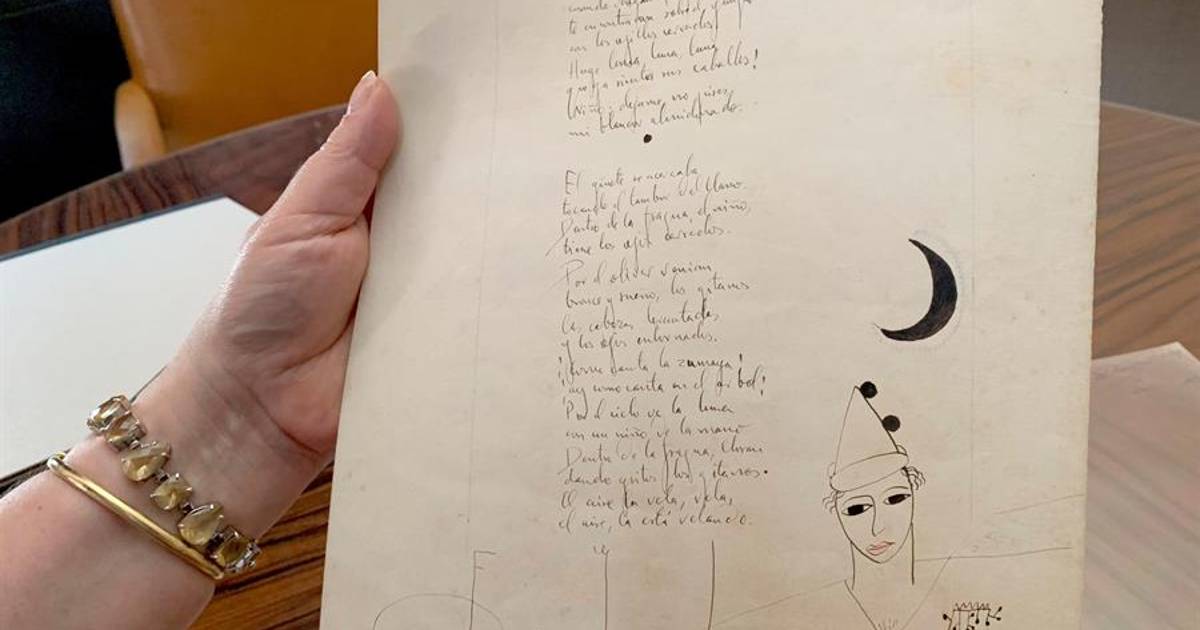 te encontrarán sobre el yunque
con los ojillos cerrados
Huye luna, luna, luna
que ya siento sus caballos!
Niño, dejame, no pises,
mi blancor almidonado.
El ginete se acercaba
tocando el tambor del llano.
Dentro de la fragua, el niño,
tiene los ojos cerrados.
Por el olivar venian
bronce y sueño, los gitanos
las cabezas levantadas
y los ojos entornados.
¡Como canta la zumaya!
¡ay como canta en el arbol!
Por el cielo va la luna
con un niño de la mano
Dentro de la fragua, lloran
dando gritos, los gitanos.
El aire la vela, vela,
el aire, la está velando.